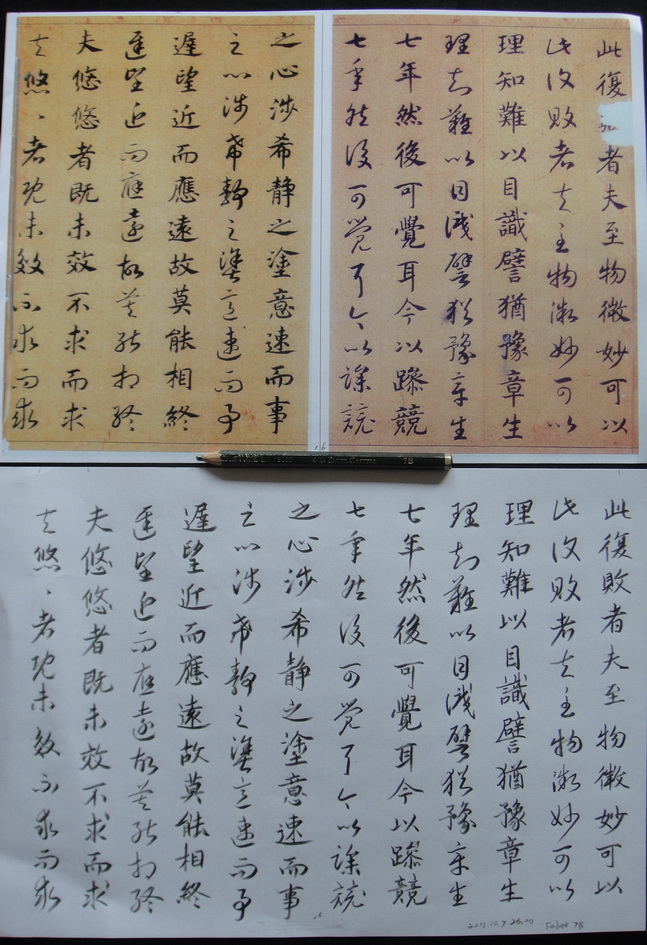 此復者夫至物微妙可以
此復敗者夫至物微妙可以
理知難以目識譬猶豫章生
理知難以目識譬猶豫章生
七年然後可覺耳今以躁競
七年然後可覺耳今以躁競
之心涉希静之塗意速而事
之心涉希静之塗意速而事
遲望近而應遠故莫能相終
遲望近而應遠故莫能相終
夫悠悠者既未效不求而求
夫悠〻者既未效不求而求
7B
此復敗者夫至物微妙可以
此復敗者夫至物微妙可以
理知難以目識譬猶豫章生
理知難以目識譬猶豫章生
七年然後可覺耳今以躁競
七年然後可覺耳今以躁競
之心涉希静之塗意速而事
之心涉希静之塗意速而事
遲望近而應遠故莫能相終
遲望近而應遠故莫能相終
夫悠悠者既未效不求而求
夫悠〻者既未效不求而求
Faber 7B